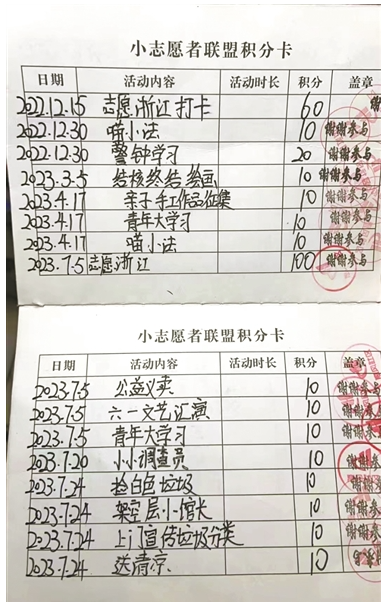 小志愿者联盟积分卡
日期 活动内容 活动时长 积分 盖章
2022.12.15 志愿浙江打卡 60 谢谢
2022.12.30 喵小法 10 谢谢参与
2022.12.30 警钟学习 20 谢谢参与
2023.3.5 结核终结绘画 10 谢谢参与
2023.4.17 亲子手工作品征集 10 谢谢参与
2023.4.17 青年大学习 10 谢谢参与
2023.4.17 喵小法 10 谢谢参与
2023.7.5 志愿浙江 100 谢谢参与
小志愿者联盟积分卡
日期 活动内容 活动时长 积分 盖章
2023.7.5 公益义卖 10 谢谢参与
2023.7.5 六一文艺汇演 10 谢谢参与
2023.7.5 青年大学习 10 谢谢参
2023.7.20 小小调查员 10 谢谢参
2023.7.24 捡白色垃圾 10 谢谢参
2023.7.24 架空层小馆长 10 谢谢参
2023.7.24 上门宣传垃圾分类 10 谢谢参
2023.7.24 送清凉 10